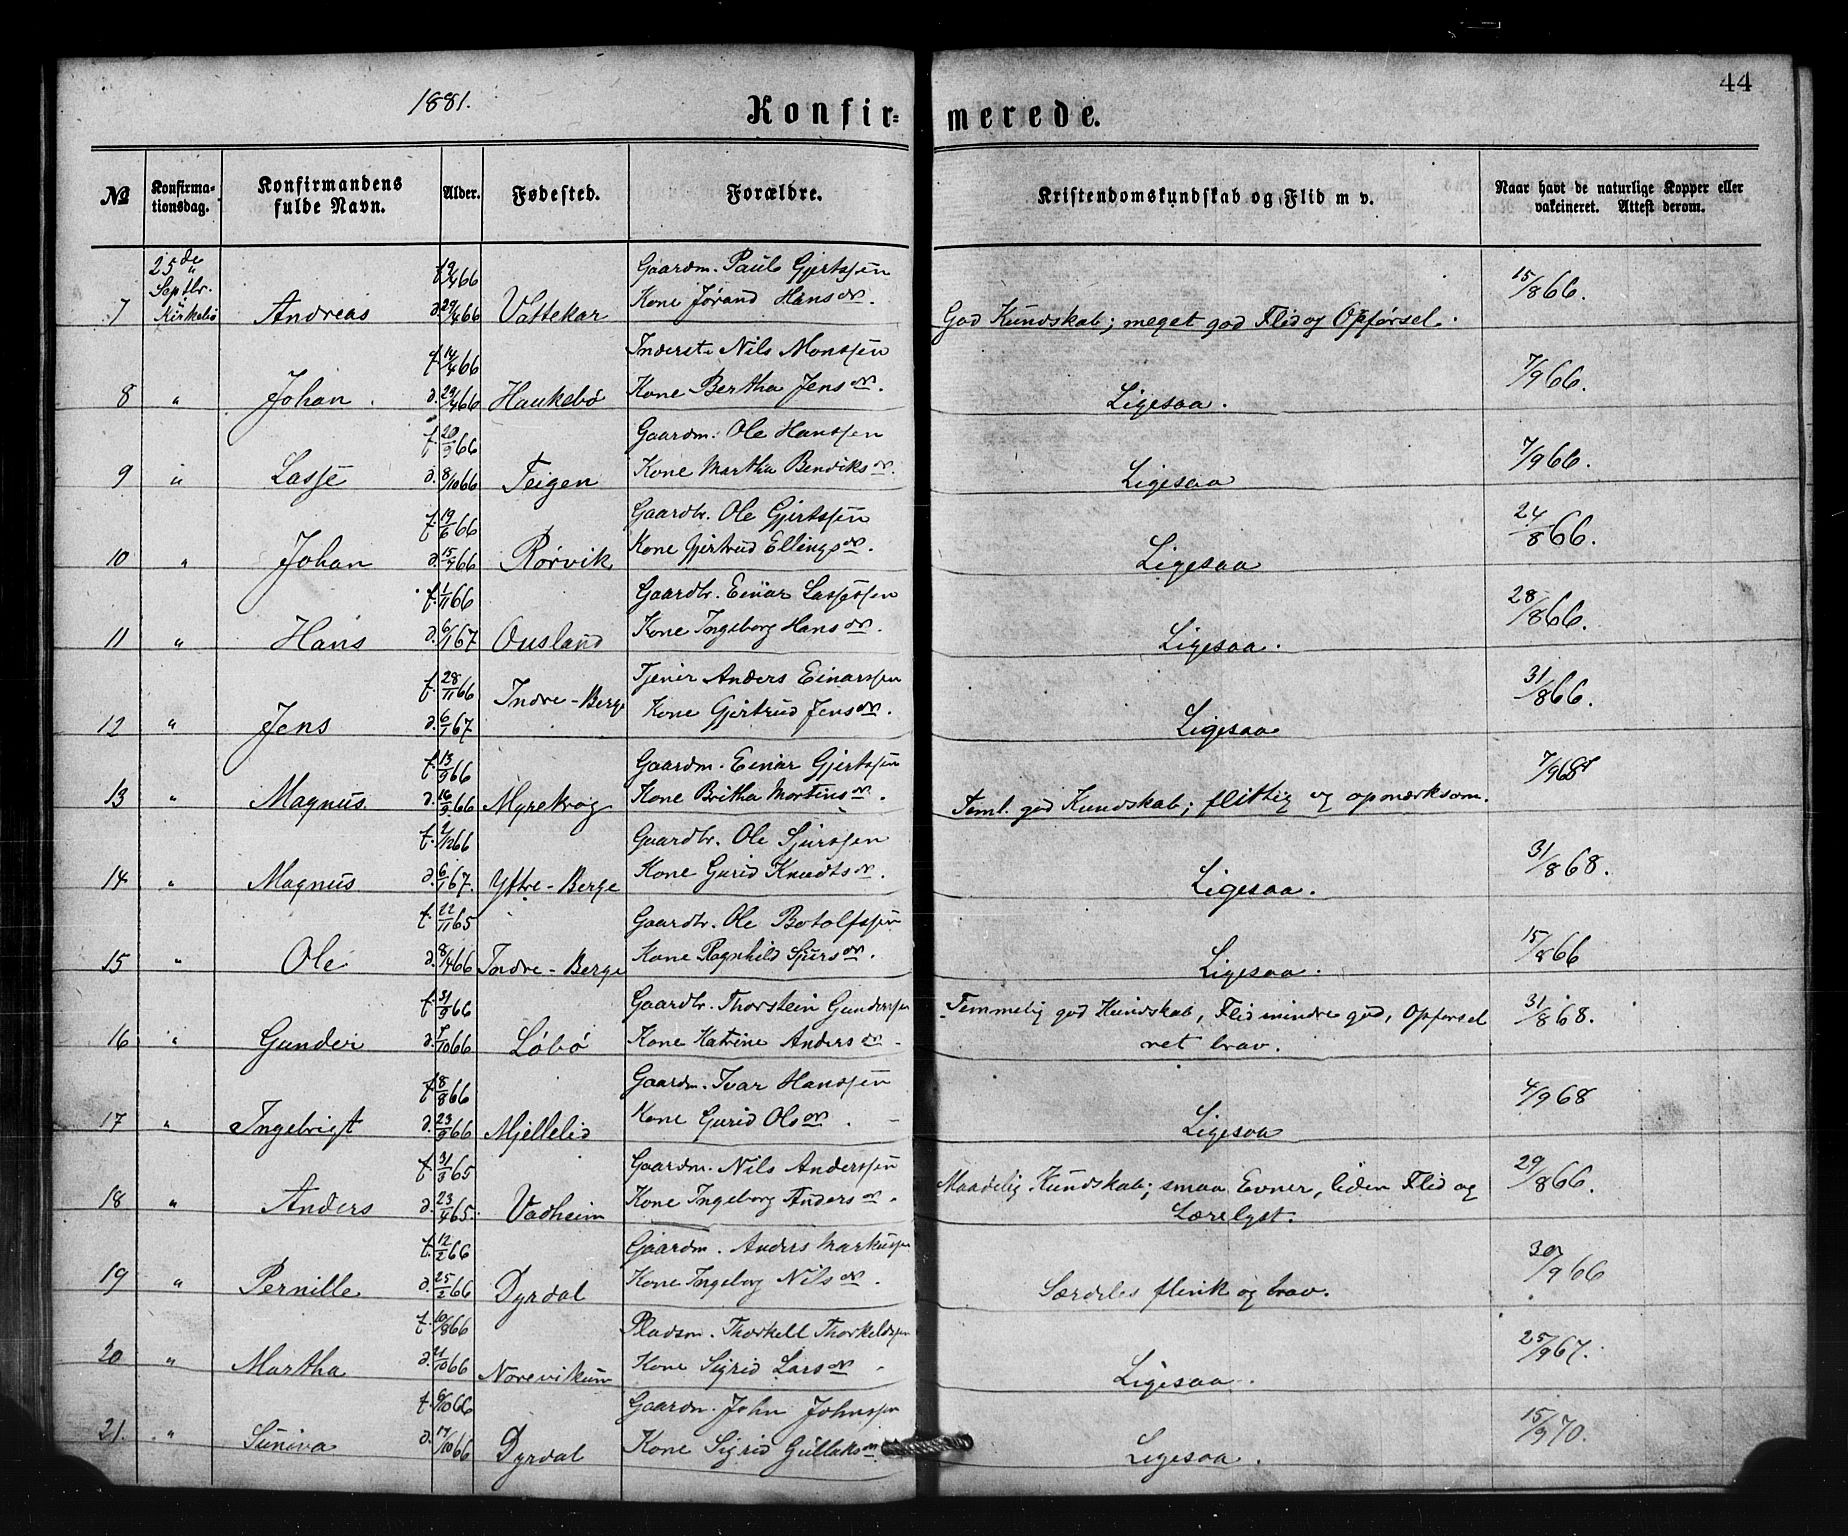 44
1881.
Konfir= merede.
No Konfirma-tionsdag. Konfirmandens fulde Navn. Alder. Fødested. Forældre. Kristendomskundskab og Flid m v. Naar havt de naturlige Kopper eller vakcineret. Attest derom.
25de Septbr. f. 19/4 66 Gaardm. Paul Gjertssen 15/8 66.
7 Kirkebø Andreas d. 29/4 66 Vattekar Kone Jørand Hansdr. God Kundskab; meget god Flid og Opførsel.
f. 14/4 66 Inderste Nils Monssen 7/9 66.
8 " Johan d. 29/4 66 Haukebø Kone Bertha Jensdr. Ligesaa.
f. 20/9 66 Gaardm. Ole Hanssen 7/9 66.
9 " Lasse d. 8/10 66 Teigen Kone Martha Bendiksdr. Ligesaa
f. 19/6 66 Gaardbr. Ole Gjertssen 24/8 66.
10 " Johan d. 15/7 66 Rørvik Kone Gjertrud Ellingsdr. Ligesaa
f. 1/11 66 Gaardbr. Einar Lassessen 28/8 66.
11 " Hans d. 6/1 67 Ousland Kone Ingeborg Hansdr. Ligesaa.
f. 28/11 66 Indre-Berge Tjener Anders Einarssen 31/8 66.
12 " Jens d. 6/1 67. Kone Gjertrud Jensdr. Ligesaa
f. 13/9 66 Gaardm. Einar Gjertssen 7/9 68
13 " Magnus d. 16/9 66 Myrekrog Kone Britha Mortinsdr. Teml. god Kundskab; flittig og opmærksom.
f. 2/12 66 Gaardbr. Ole Sjurssen 31/8 68.
14 " Magnus d. 6/1 67. Yttre-Berge Kone Gurid Knudtsdr. Ligesaa.
f. 22/11 65 Gaardbr. Ole Botolfssen 15/8 66
15 " Ole d. 8/4 66 Indre-Berge Kone Ragnhild Sjursdr. Ligesaa.
f. 31/8 66 Gaardbr. Thorstein Gunderssen Temmelig god Kundskab, Flid mindre god, Opførsel 31/8 68.
16 " Gunder d. 7/10 66 Løbø Kone Katrine Andersdr. ret brav.
f. 8/8 66 Gaardm. Ivar Hanssen 4/9 68
17 " Ingebrigt d. 23/9 66 Mjellelid Kone Gurid Olsdr. Ligesaa
f. 31/3 65 Gaardm. Nils Anderssen Maadelig Kundskab; smaa Evner, liden Flid og 29/8 66.
18 " Anders d. 23/4 65. Vadheim Kone Ingeborg Andersdr. Lærelyst.
f. 12/2 66 Gaardm. Anders Markussen 30/9 66
19 " Pernille d. 25/2 66 Dyrdal Kone Ingeborg Nilsdr. Særdeles flink og brav.
f. 10/8 66 Pladsm. Thorkell Thorkeldssen 25/9 67.
20 " Martha d. 11/10 66 Norevikum Kone Sigrid Larsdr. Ligesaa.
f. 6/10 66 Gaardm. John Johnssen 15/9 70.
21. " Suniva d. 17/10 66 Dyrdal Kone Sigrid Gullaksdr. Ligesaa.